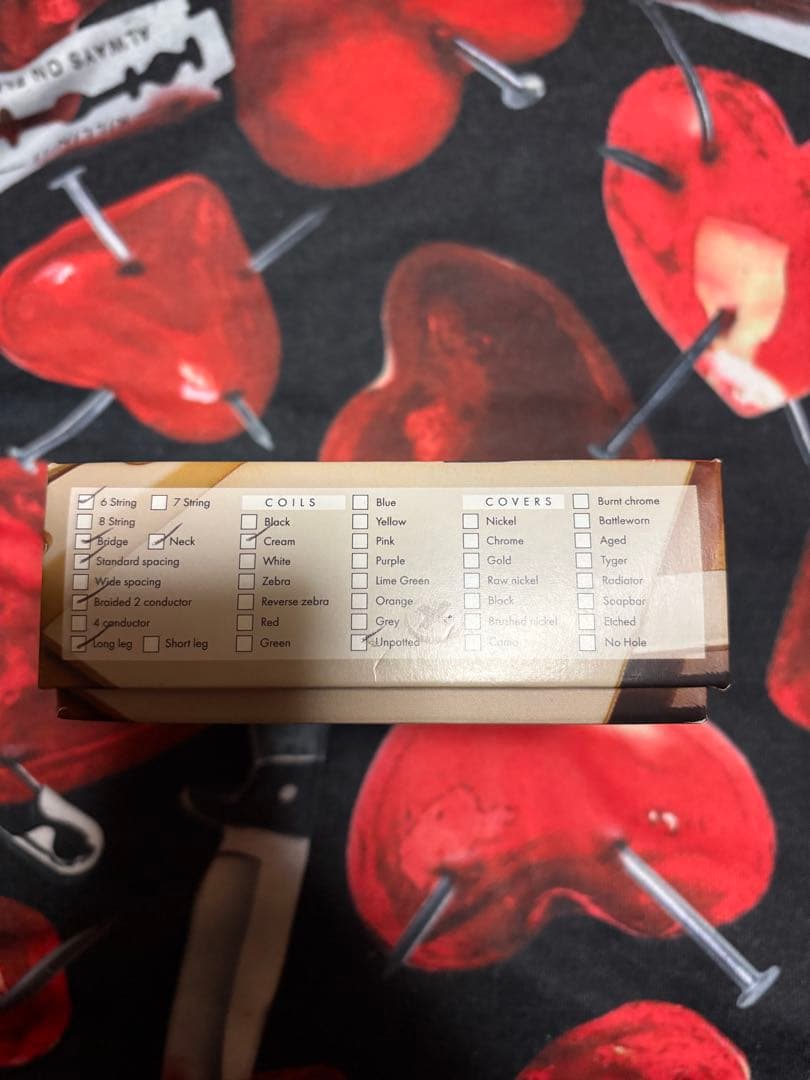 ALWAYS ON
6 String 7 String
8 String
Bridge Neck
Standard spacing
Wide spacing
Braided 2 conductor
4 conductor
Long leg Short leg
COILS
Black
Cream
White
Zebra
Reverse zebra
Red
Green
Blue
Yellow
Pink
Purple
Lime Green
Orange
Grey
Unpotted
COVERS
Nickel
Chrome
Gold
Raw nickel
Black
Brushed nickel
Camo
Burnt chrome
Battleworn
Aged
Tyger
Radiator
Soapbar
Etched
No Hole